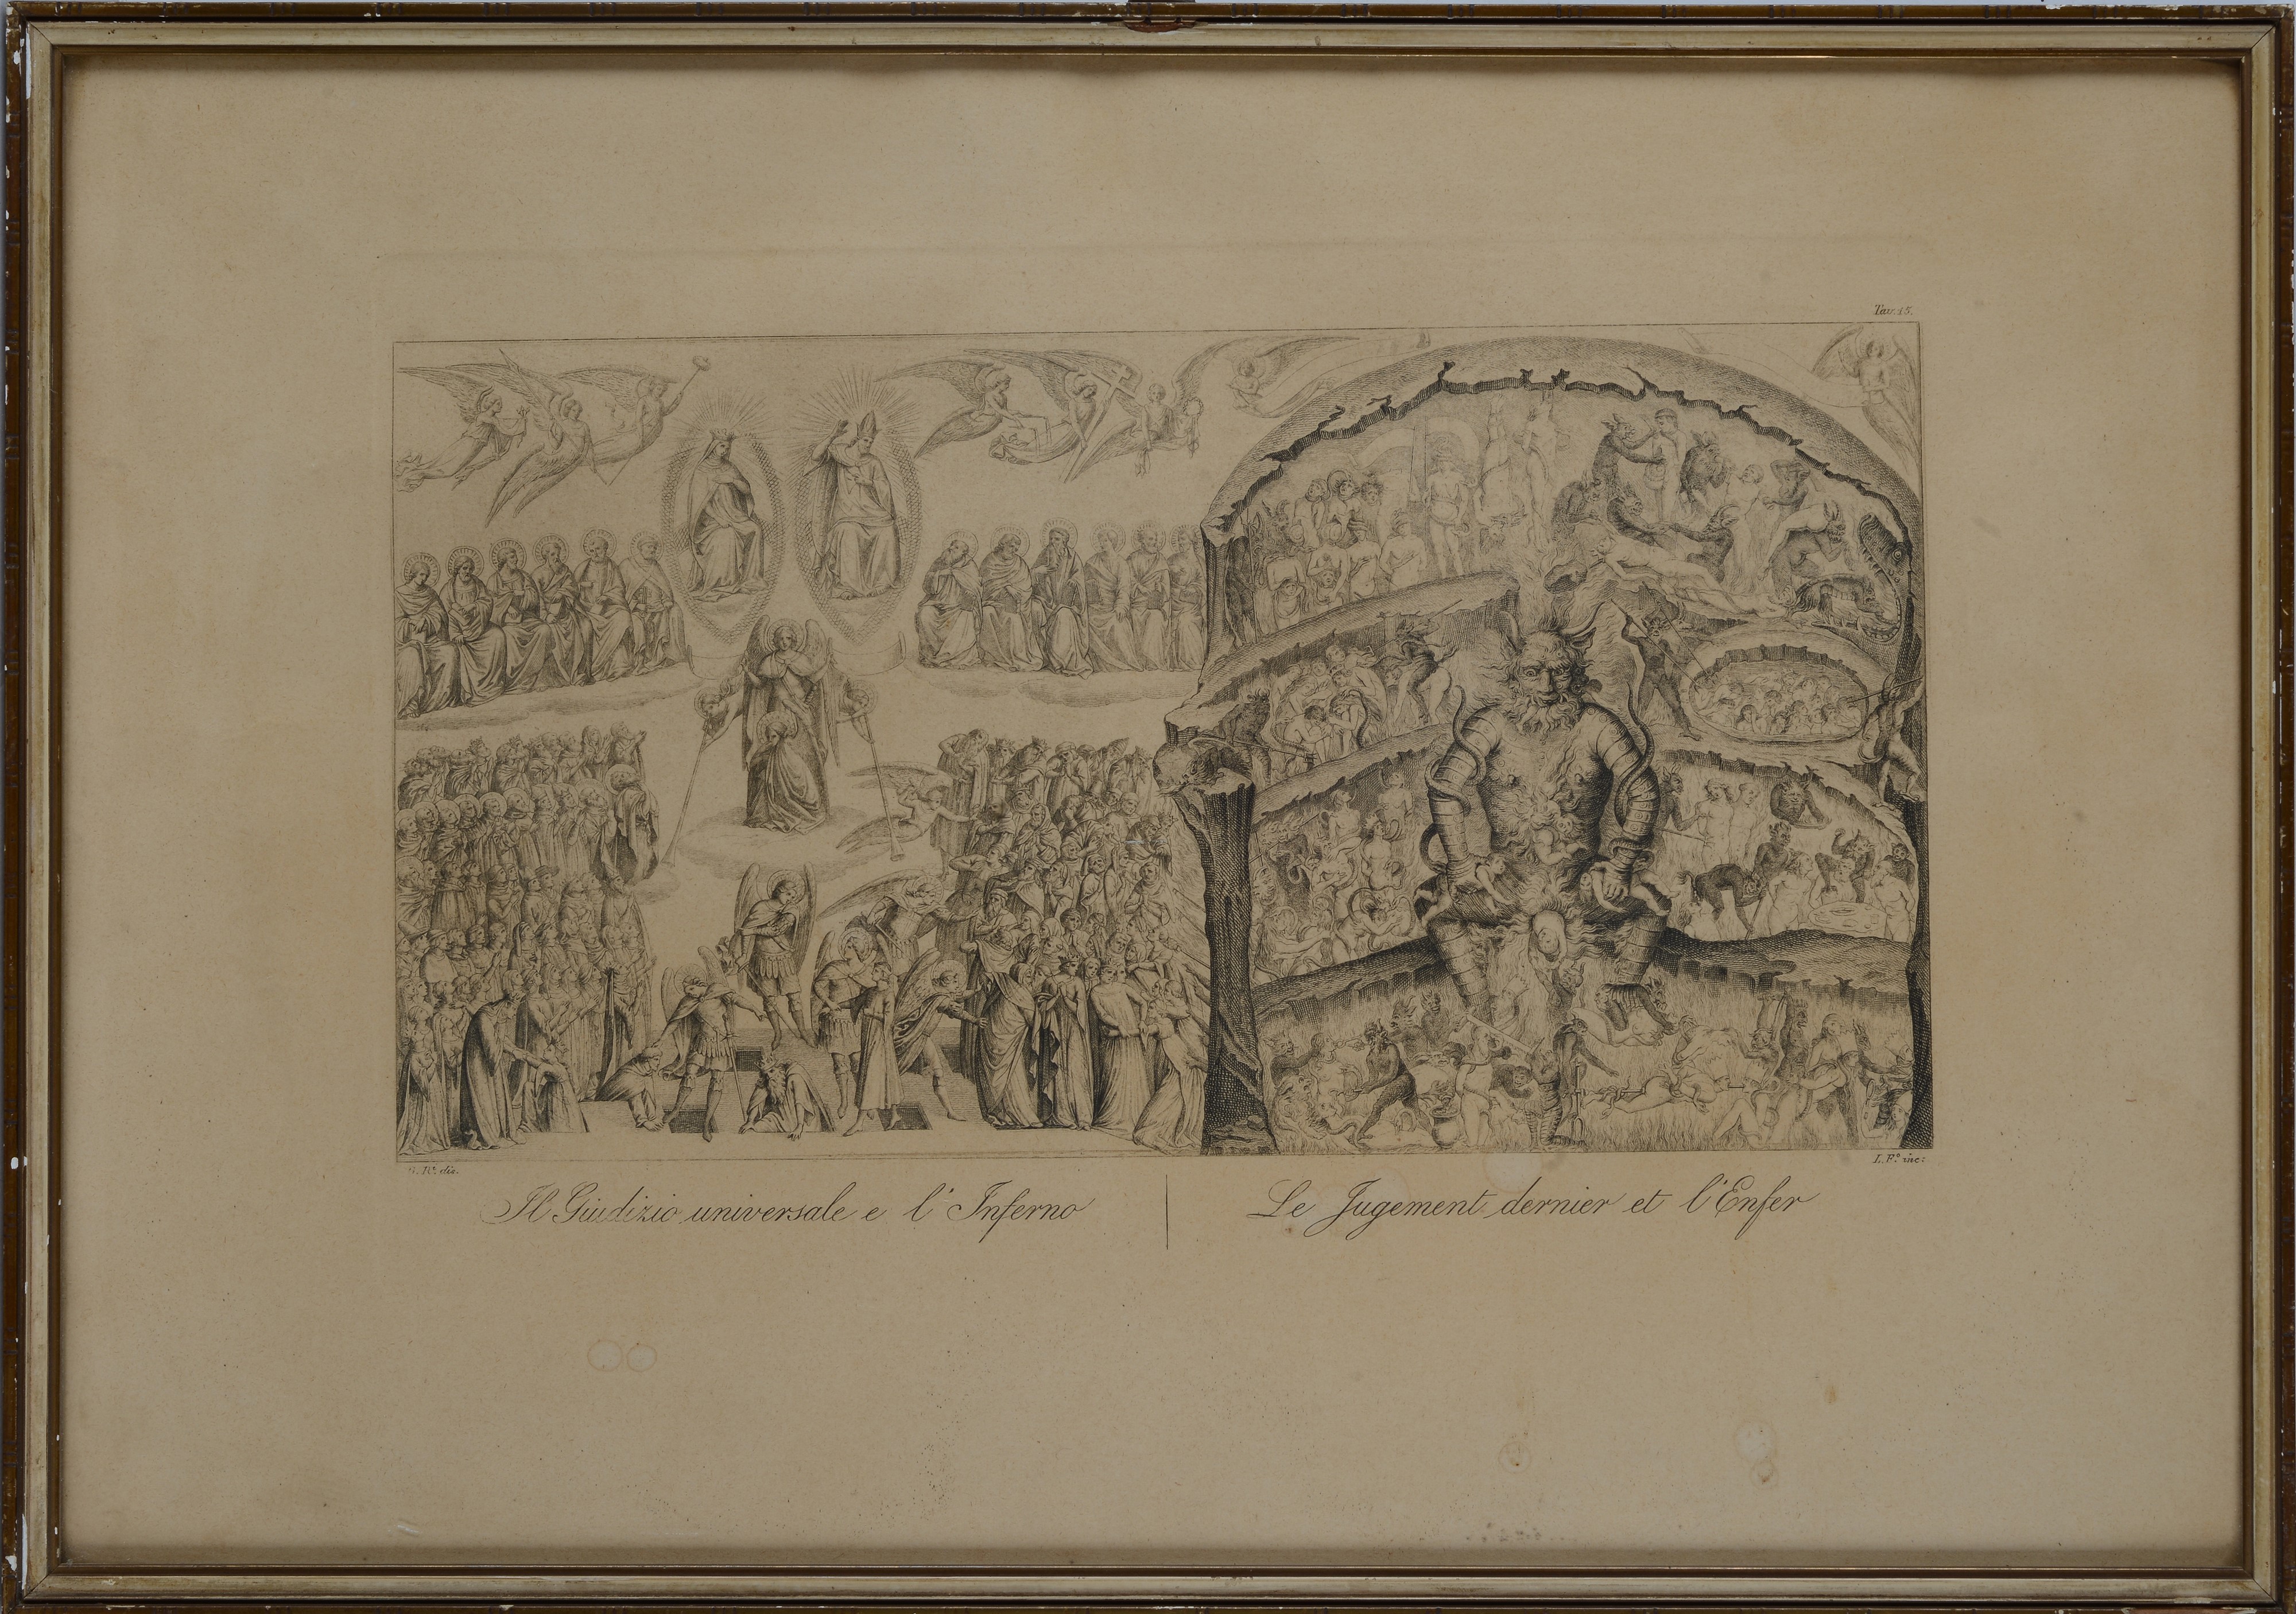 Tav. 15.
G. R. dis.
I. F.º inc:
Il Giudizio universale e l'Inferno
Le Jugement dernier et l'Enfer